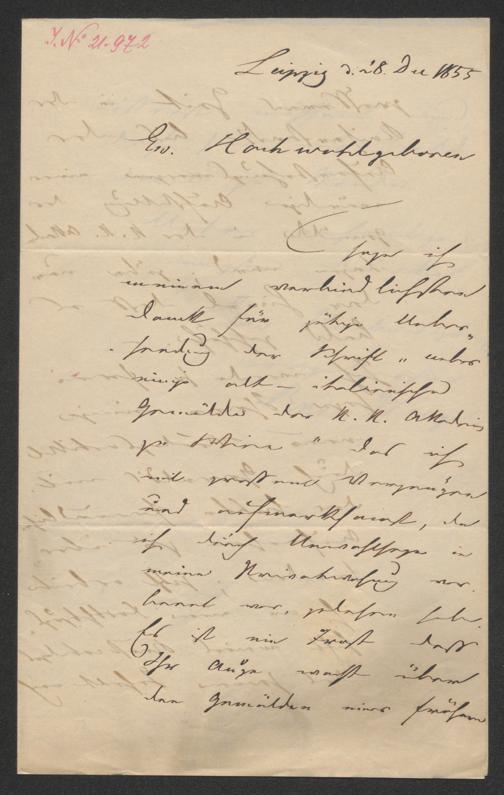 J. No 21.972
Leipzig d. 28. Dec 1855
Ew. Hochwohlgeboren
sage ich
meinen verbindlichsten
Dank für gütige Ueber„
sendung der Schrift „ueber
einige alt-italienische
Gemälde der K. K. Akademie
zu Wien" das ich
mit grossem Vergnügen
und aufmerksamst, da
ich durch in
meine ver„
bannt war, gelesen habe.
Es ist ein Trost dass
Ihr Auge wacht über
den Gemälden eines frühern